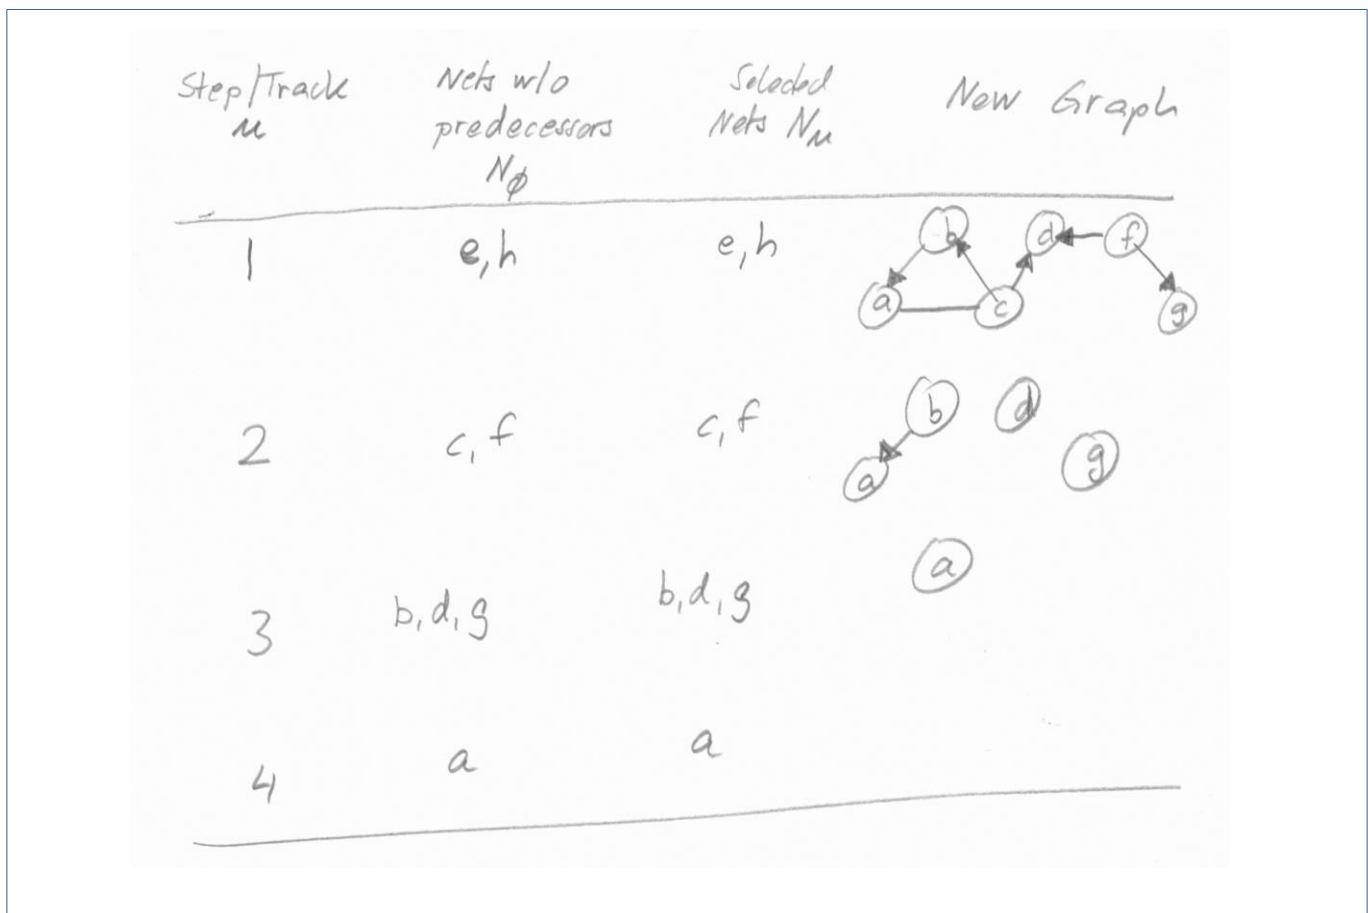 Step/Track
μ
Nets w/o
predecessors
N∅
Selected
Nets Nμ
New Graph
1
e,h
e,h
b
d
f
a
c
g
2
c, f
c, f
b
d
a
g
3
b, d, g
b, d, g
a
4
a
a